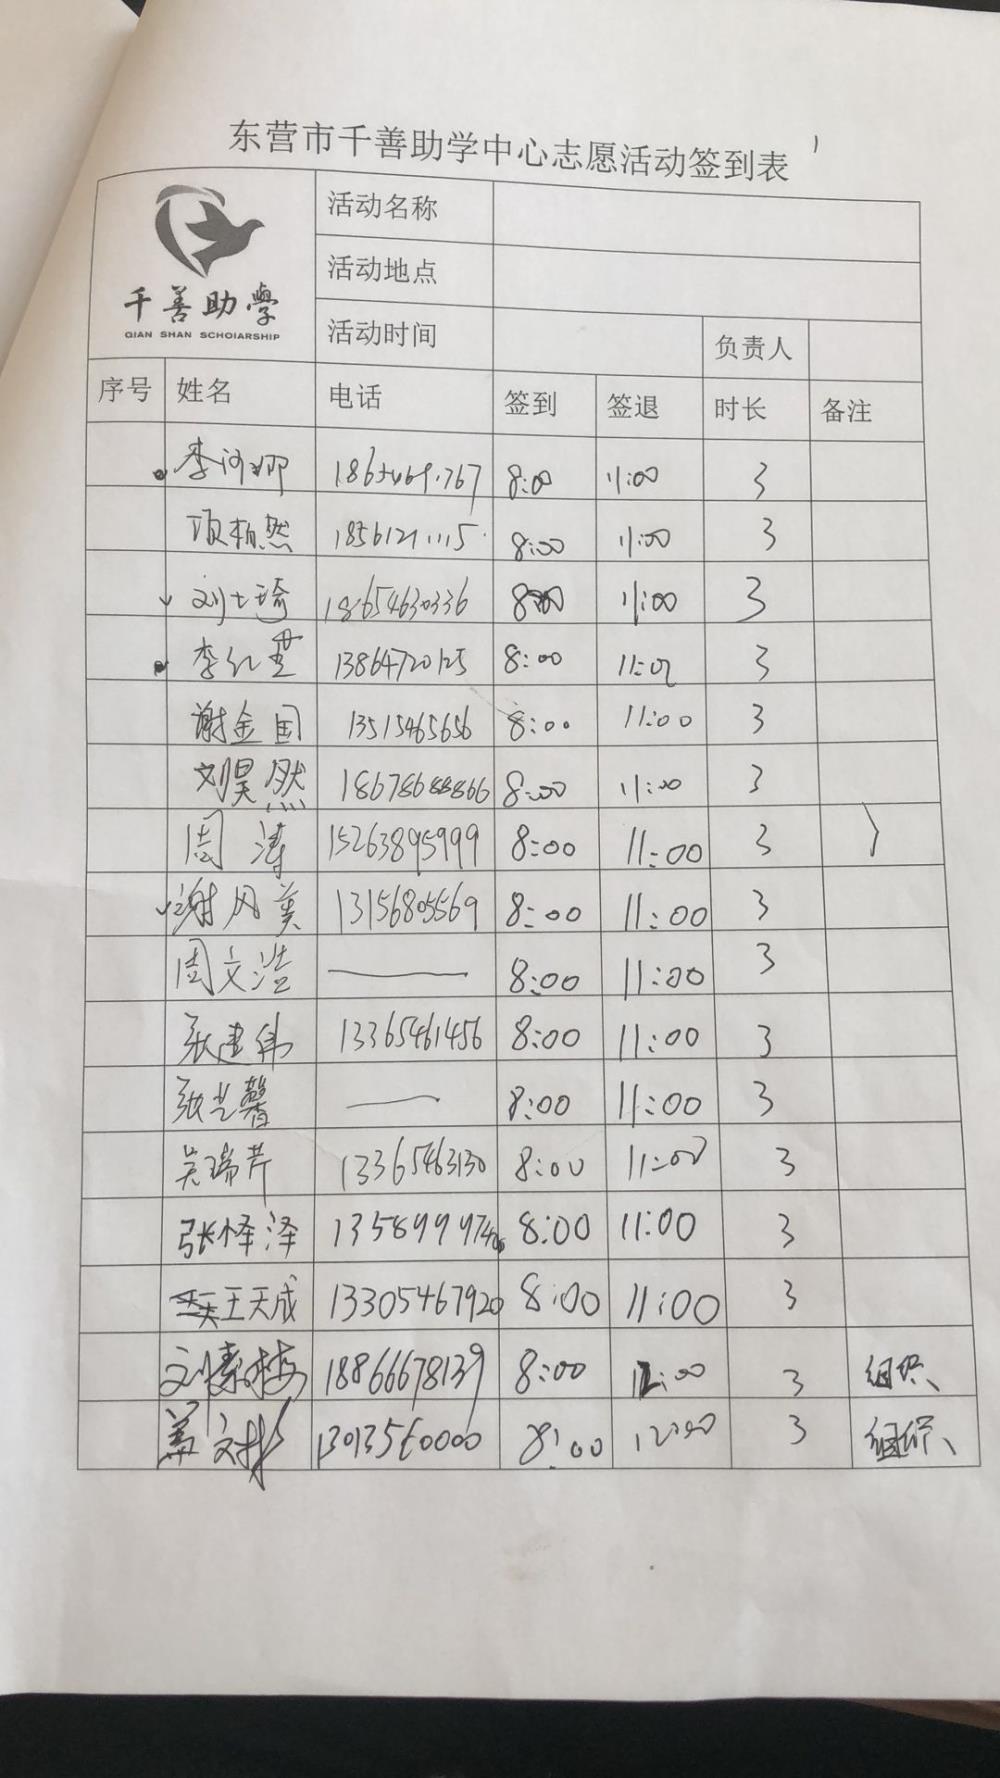 东营市千善助学中心志愿活动签到表
千善助學
QIAN SHAN SCHOIARSHIP
活动名称
活动地点
活动时间 负责人
序号 姓名 电话 签到 签退 时长 备注
8:00 11:00 3
项柏然 8:00 11:00 3
刘士琦 18654630336 8:00 11:00 3
李红 13864720125 8:00 11:00 3
谢金国 13515465656 8:00 11:00 3
刘昊然 8:00 11:00 3
周涛 15263895999 8:00 11:00 3
谢风英 13156805569 8:00 11:00 3
周文浩 — 8:00 11:00 3
张建伟 13365461456 8:00 11:00 3
张艺馨 — 8:00 11:00 3
吴瑞芹 13365463130 8:00 11:00 3
张怿泽 8:00 11:00 3
王天成 13305467920 8:00 11:00 3
刘素梅 18866678139 8:00 12:00 3 组织、
盖文彬 8:00 12:00 3 组织、